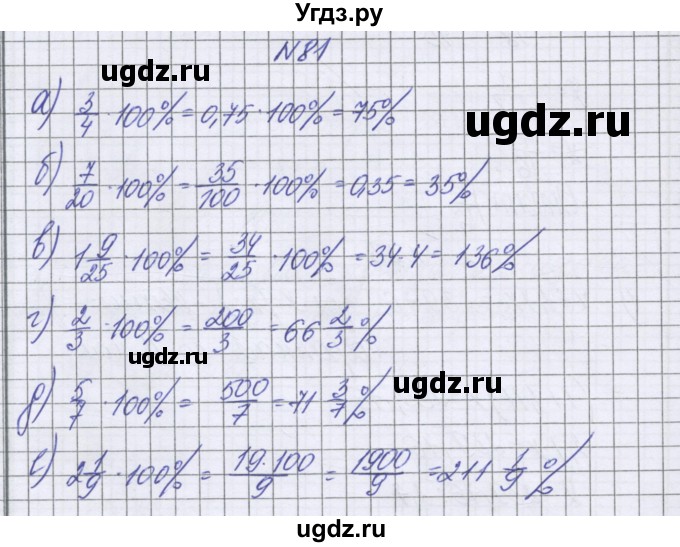 Угдз.ру
№81
ugdz.ru
а) 3/4 · 100% = 0,75 · 100% = 75%
ugdz.ru
б) 7/20 · 100% = 35/100 · 100% = 0,35 = 35%
в) 1 9/25 · 100% = 34/25 · 100% = 34 · 4 = 136%
г) 2/3 · 100% = 200/3 = 66 2/3 %
ugdz.ru
ugdz.ru
д) 5/7 · 100% = 500/7 = 71 3/7 %
е) 2 1/9 · 100% = 19·100/9 = 1900/9 = 211 1/9 %
ugdz.ru
ugdz.ru